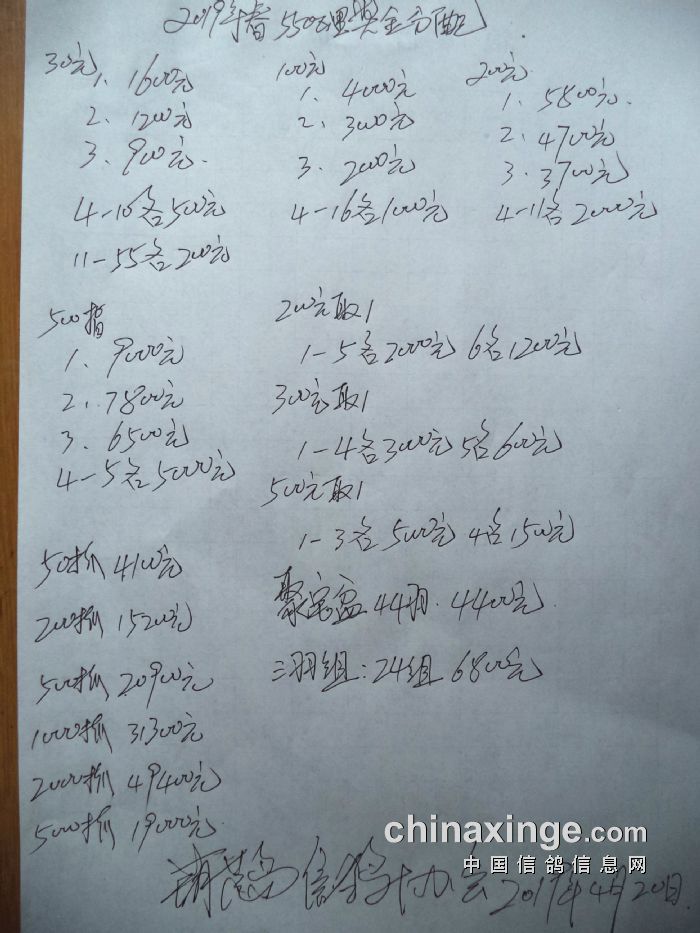 2019年春550公里奖金分配
30元
1. 1600元
2. 1200元
3. 900元.
4-10名500元
11-55名200元
100元
1. 4000元
2. 3000元
3. 2000元
4-16名1000元
200元
1. 5800元.
2. 4700元
3. 3700元
4-11名2000元
500指
1. 9000元
2. 7800元
3. 6500元
4-5名5000元
200元取1
1-5名2000元 6名1200元
300元取1
1-4名3000元 5名600元
500元取1
1-3名5000元 4名1500元
50抓 4100元
200抓 15200元
500抓 20900元
1000抓 31300元
2000抓 49400元
5000抓 19000元
聚宝盆 44羽. 4400元.
三羽组:24组 6800元
信鸽办会 2019年4月20日.
chinaxinge.com
中国信鸽信息网